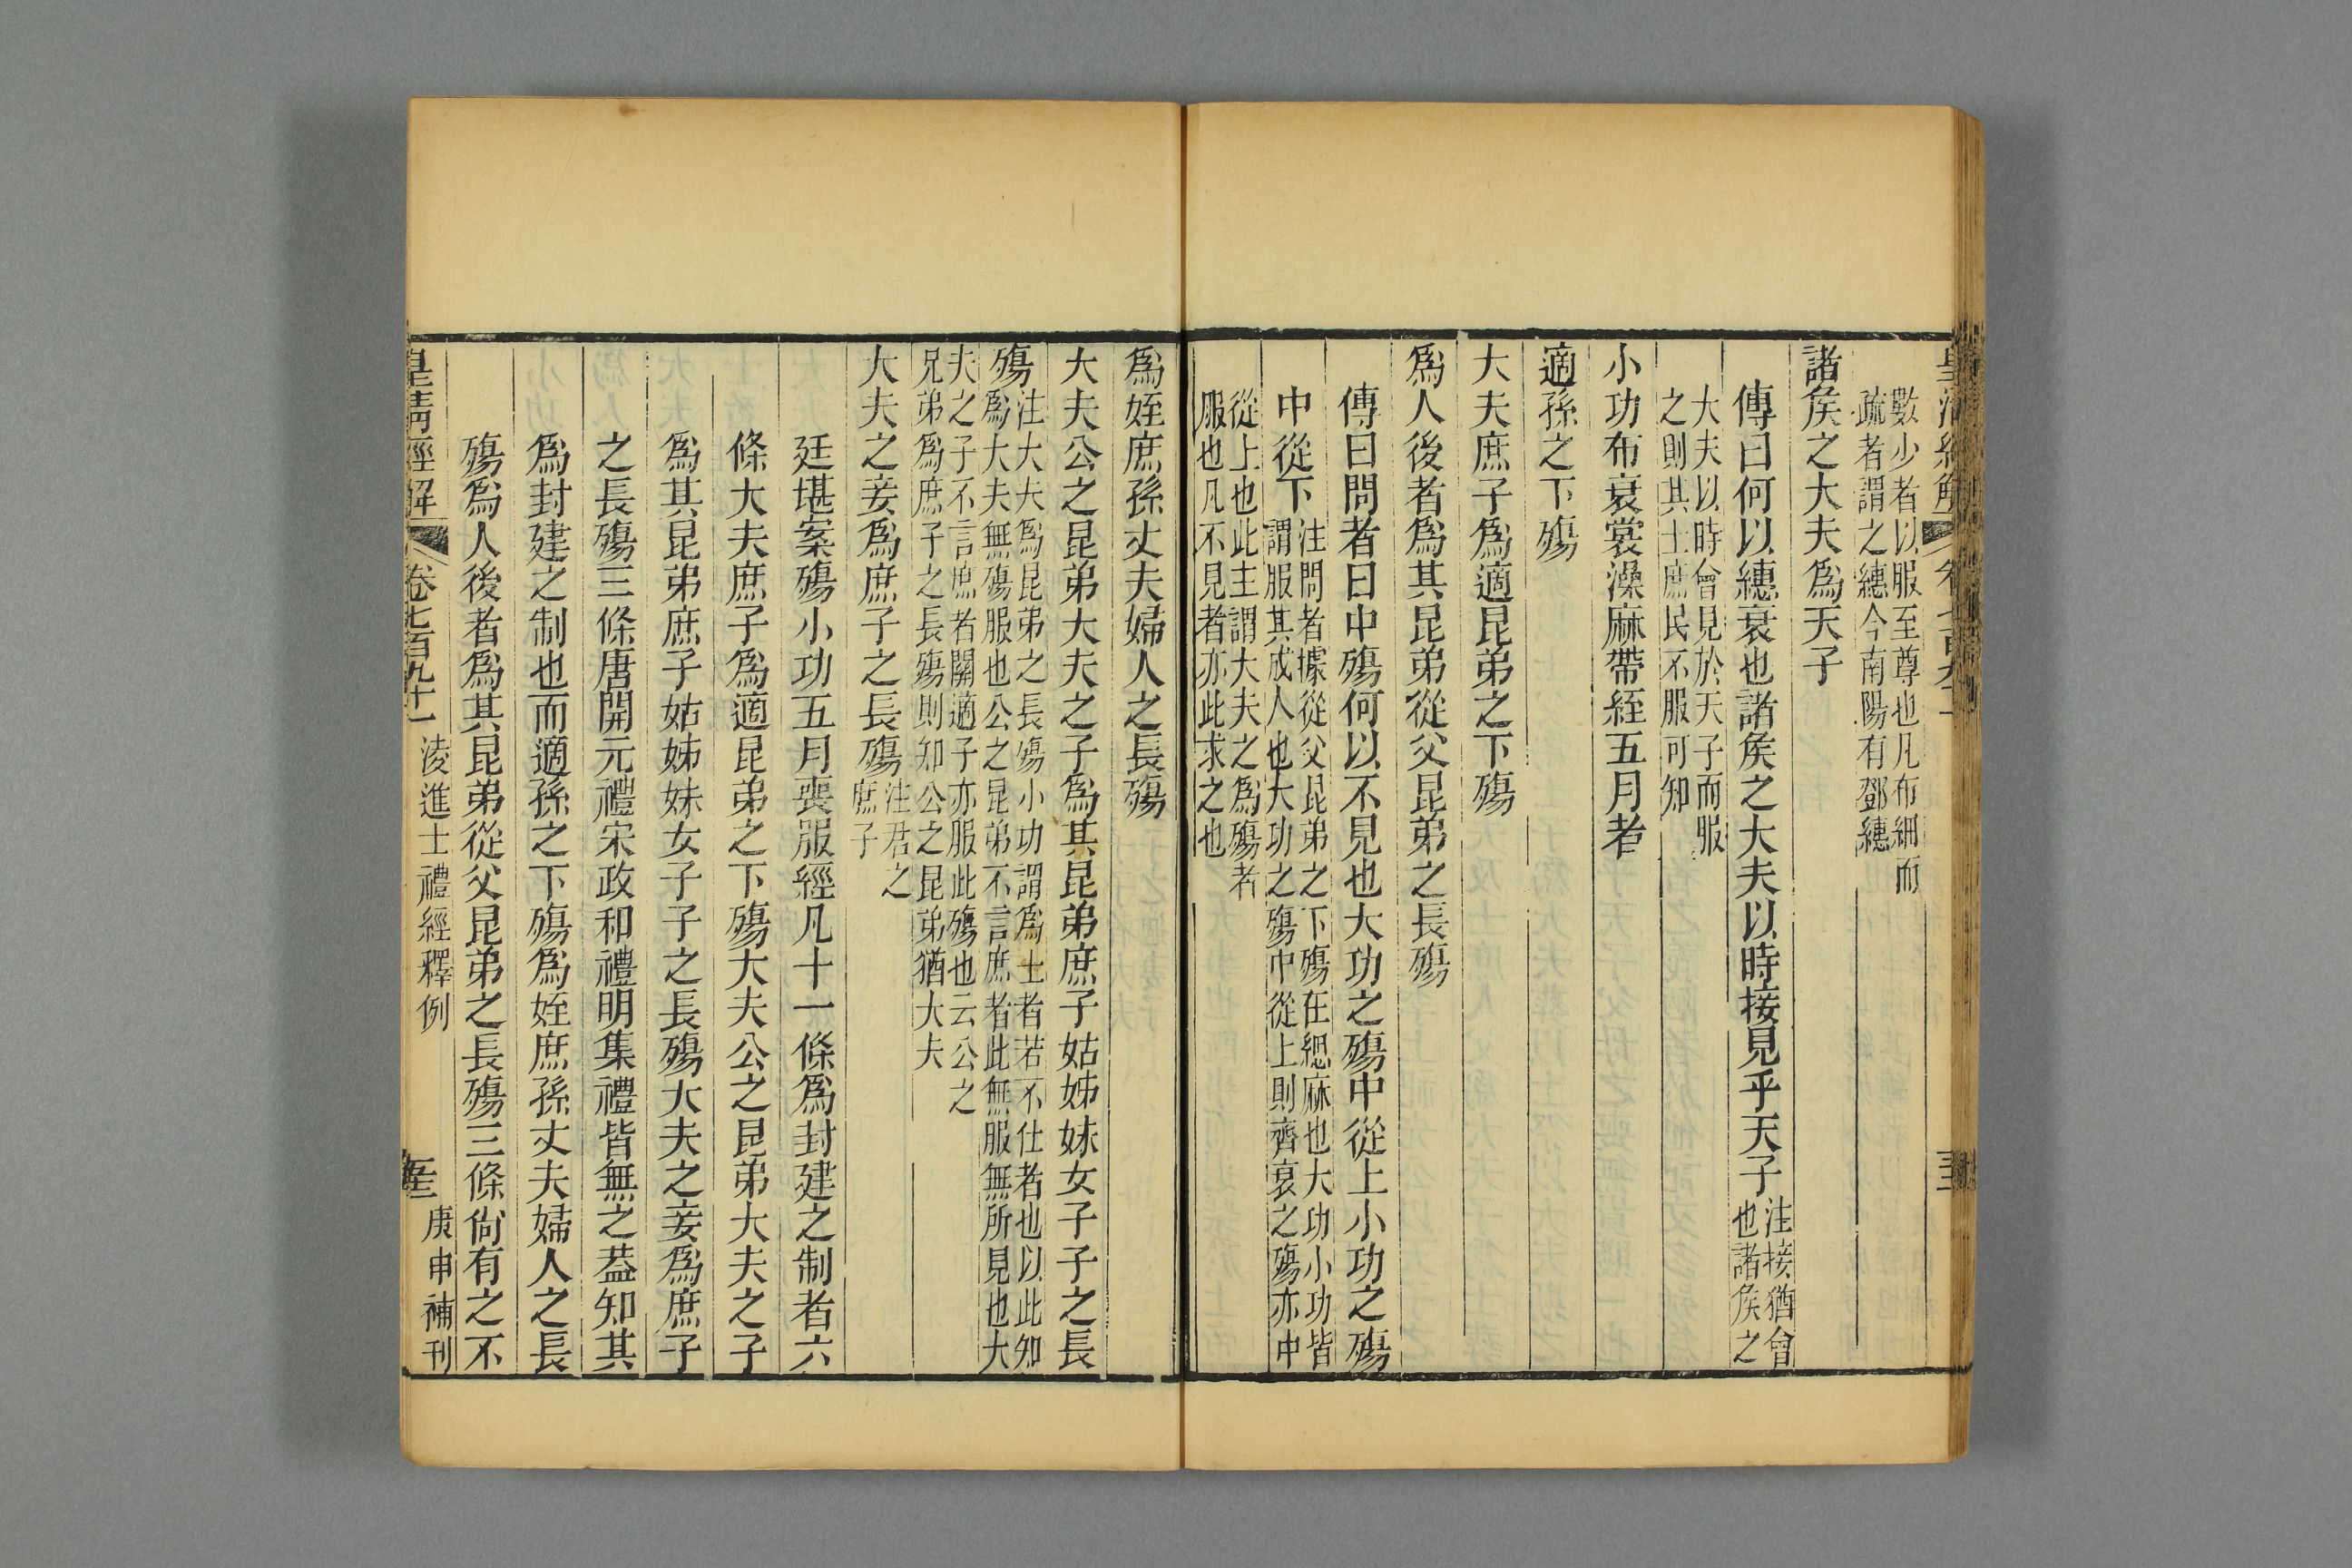 數少者以服至尊也凡布細而
疏者謂之繐今南陽有鄧繐
諸矦之大夫爲天子
傳曰何以繐衰也諸矦之大夫以時接見乎天子注接猶會
也諸矦之
大夫以時會見於天子而服
之則其士庶民不服可知
小功布衰裳澡麻帶絰五月者
適孫之下殤
大夫庶子爲適昆弟之下殤
爲人後者爲其昆弟從父昆弟之長殤
傳曰問者曰中殤何以不見也大功之殤中從上小功之殤
中從下注問者據從父昆弟之下殤在緦麻也大功小功皆
謂服其成人也大功之殤中從上則齊衰之殤亦中
從上也此主謂大夫之爲殤者
服也凡不見者亦此求之也
爲姪庶孫丈夫婦人之長殤
大夫公之昆弟大夫之子爲其昆弟庶子姑姊妹女子子之長
殤注大夫爲昆弟之長殤小功謂爲士者若不仕者也以此知
爲大夫無殤服也公之昆弟不言庶者此無服無所見也大
夫之子不言庶者關適子亦服此殤也云公之
兄弟爲庶子之長殤則知公之昆弟猶大夫
大夫之妾爲庶子之長殤注君之
庶子
廷堪案殤小功五月喪服經凡十一條爲封建之制者六
條大夫庶子爲適昆弟之下殤大夫公之昆弟大夫之子
爲其昆弟庶子姑姊妹女子子之長殤大夫之妾爲庶子
之長殤三條唐開元禮宋政和禮明集禮皆無之葢知其
爲封建之制也而適孫之下殤爲姪庶孫丈夫婦人之長
殤爲人後者爲其昆弟從父昆弟之長殤三條尙有之不
皇清經解 卷七百九十一 淩進士禮經釋例 庚申補刊